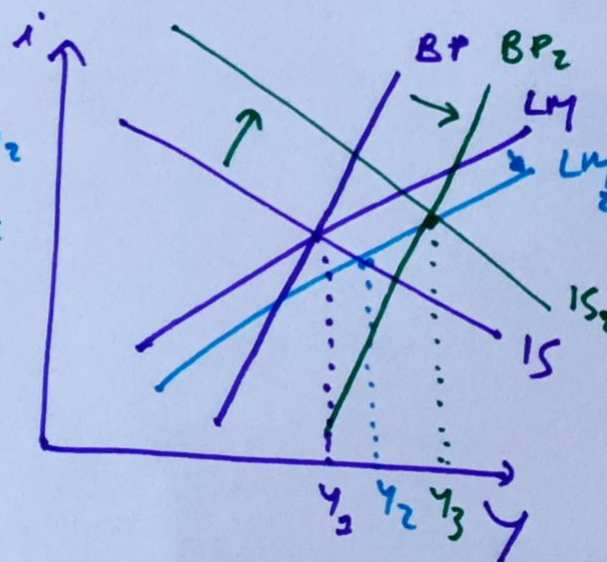 i
BP
BP₂
LM
2
LM₂
IS₂
IS
Y₁
Y₂
Y₃
Y